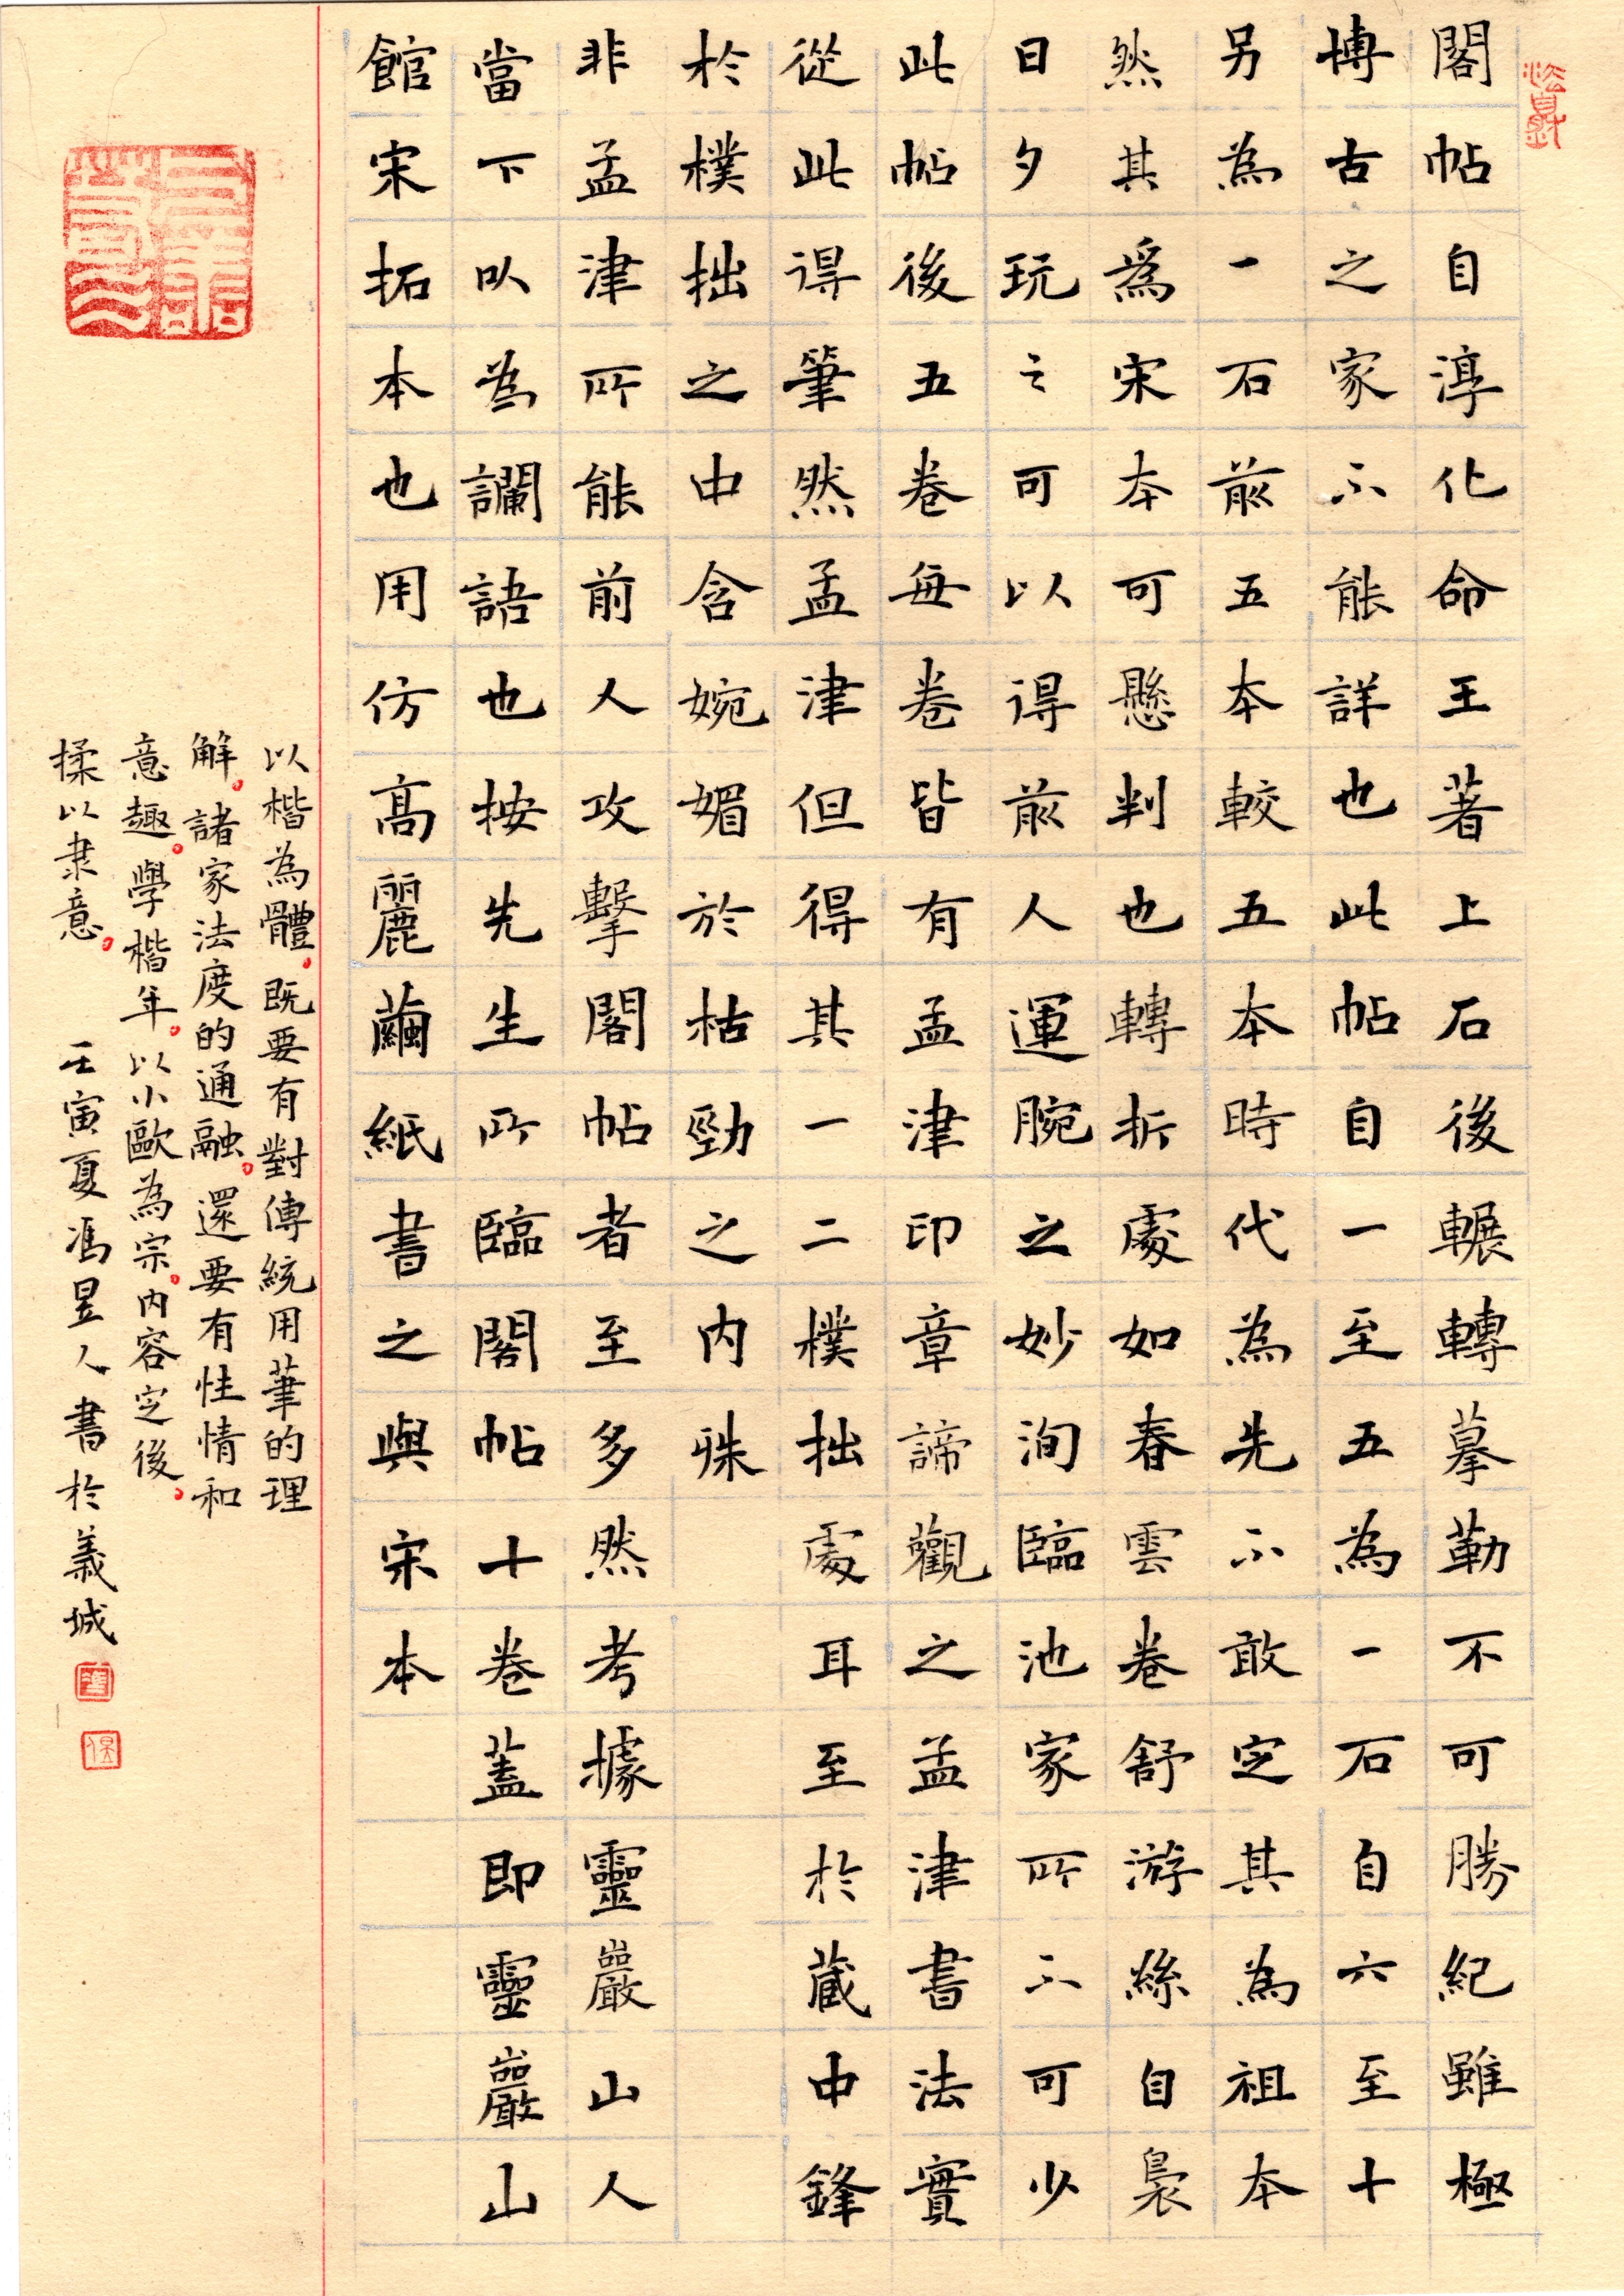 閣帖自淳化命王著上石後輾轉摹勒不可勝紀雖極
博古之家不能詳也此帖自一至五為一石自六至十
另為一石前五本較五本時代為先不敢定其為祖本
然其為宋本可懸判也轉折處如春雲卷舒游絲自裊
日夕玩之可以得前人運腕之妙洵臨池家所不可少
此帖後五卷每卷皆有孟津印章諦觀之孟津書法實
從此得筆然孟津但得其一二樸拙處耳至於藏中鋒
於樸拙之中含婉媚於枯勁之內殊
非孟津所能前人攻擊閣帖者至多然考據靈巖山人
當下以為讕語也按先生所臨閣帖十卷蓋即靈巖山
館宋拓本也用仿高麗繭紙書之與宋本
以楷為體。既要有對傳統用筆的理
解。諸家法度的通融。還要有性情和
意趣。學楷年。以小歐為宗。內容定後。
揉以隶意。 壬寅夏馮昱人書於義城